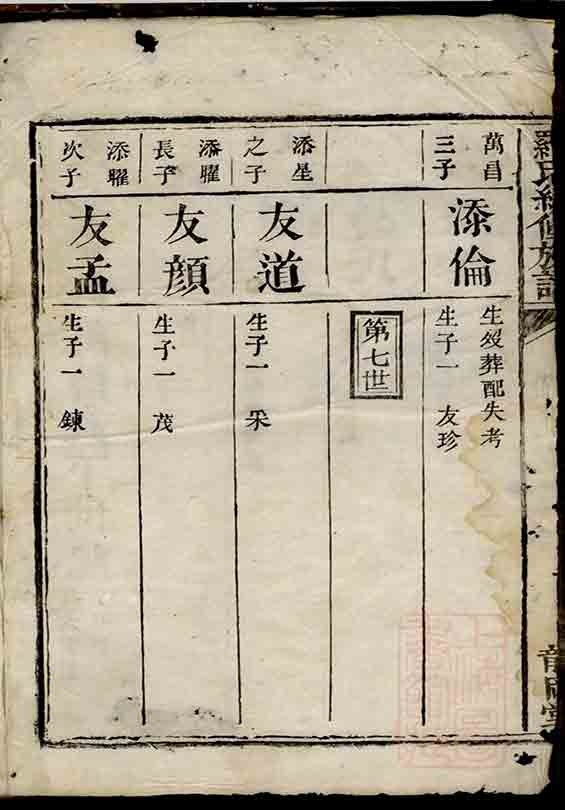 羅氏續修族譜
萬昌
三子
添倫
生歿葬配失考
生子一 友珍
第七世
添星
之子
友道
生子一 采
添驩
長子
友顏
生子一 茂
添驩
次子
友孟
生子一 鍊